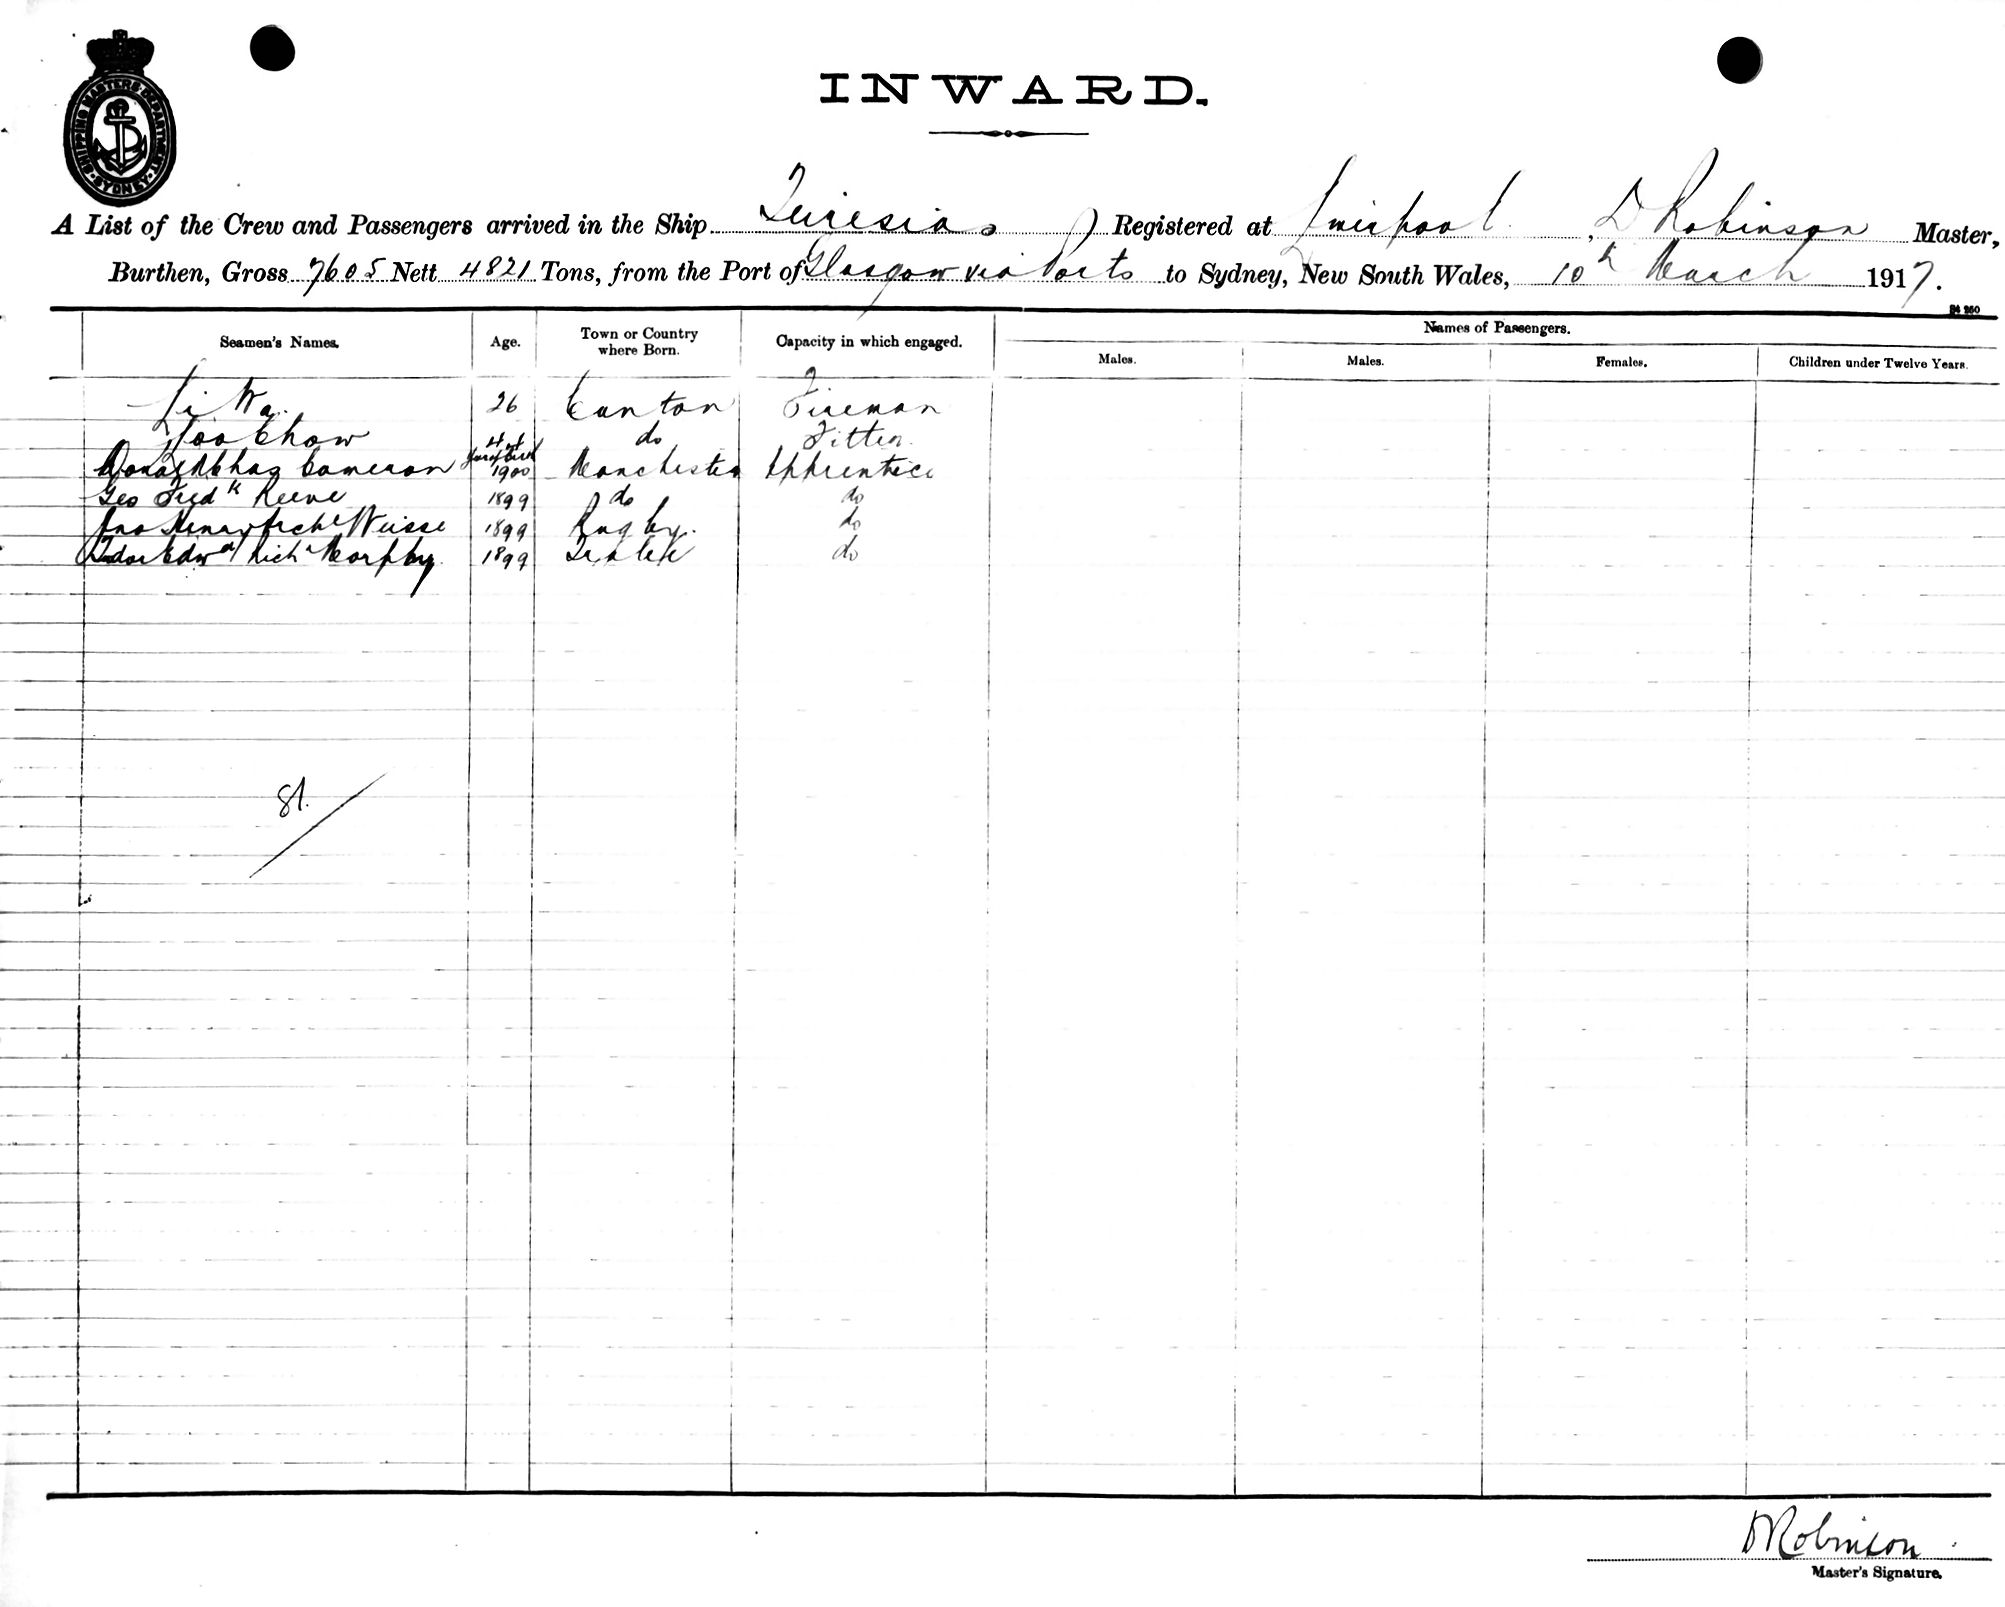 SHIPPING MASTERS DEPARTMENT SYDNEY
INWARD.
A List of the Crew and Passengers arrived in the Ship Teiresias Registered at Liverpool, D Robinson Master,
Burthen, Gross 7605 Nett 4821 Tons, from the Port of Glasgow via Ports to Sydney, New South Wales, 10th March 1917.
Seamen's Names. Age. Town or Country where Born. Capacity in which engaged. Names of Passengers.
Males. Males. Females. Children under Twelve Years.
Li Wa. 26 Canton Fireman
Chow do Fitter
Year of Birth
Cameron 1900 Manchester Apprentice
Geo Fredk Reeve 1899 do do
1899 Rugby. do
Edwd Richd Morphy 1899 do
81.
D Robinson
Master's Signature.